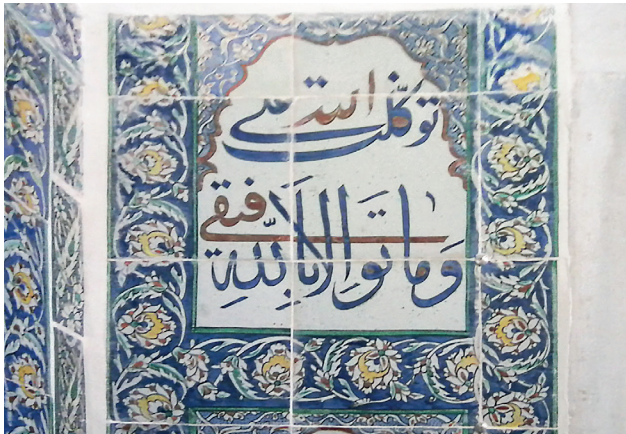 توكَّلت على الله
وَما تَوفيقى الا بِاللّهِ